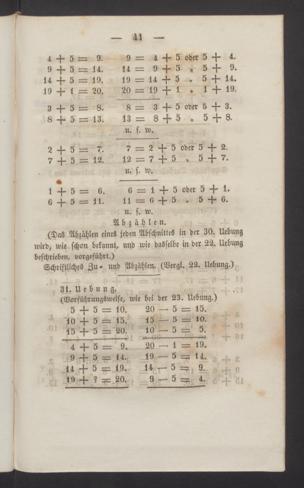 — 41 —
4 + 5 = 9. 9 = 4 + 5 oder 5 + 4.
9 + 5 = 14. 14 = 9 + 5 „ 5 + 9.
14 + 5 = 19. 19 = 14 + 5 „ 5 + 14.
19 + 1 = 20. 20 = 19 + 1 „ 1 + 19.
3 + 5 = 8. 8 = 3 + 5 oder 5 + 3.
8 + 5 = 13. 13 = 8 + 5 „ 5 + 8.
u. s. w.
2 + 5 = 7. 7 = 2 + 5 oder 5 + 2.
7 + 5 = 12. 12 = 7 + 5 „ 5 + 7.
u. s. w.
1 + 5 = 6. 6 = 1 + 5 oder 5 + 1.
6 + 5 = 11. 11 = 6 + 5 „ 5 + 6.
u. s. w.
Abzählen.
(Das Abzählen eines jeden Abschnittes in der 30. Uebung
wird, wie schon bekannt, und wie dasselbe in der 22. Uebung
beschrieben, vorgeführt.)
Schriftliches Zu- und Abzählen. (Vergl. 22. Uebung.)
31. Uebung.
(Vorführungsweise, wie bei der 23. Uebung.)
5 + 5 = 10. 20 — 5 = 15.
10 + 5 = 15. 15 — 5 = 10.
15 + 5 = 20. 10 — 5 = 5.
4 + 5 = 9. 20 — 1 = 19.
9 + 5 = 14. 19 — 5 = 14.
14 + 5 = 19. 14 — 5 = 9.
19 + ? = 20. 9 — 5 = 4.